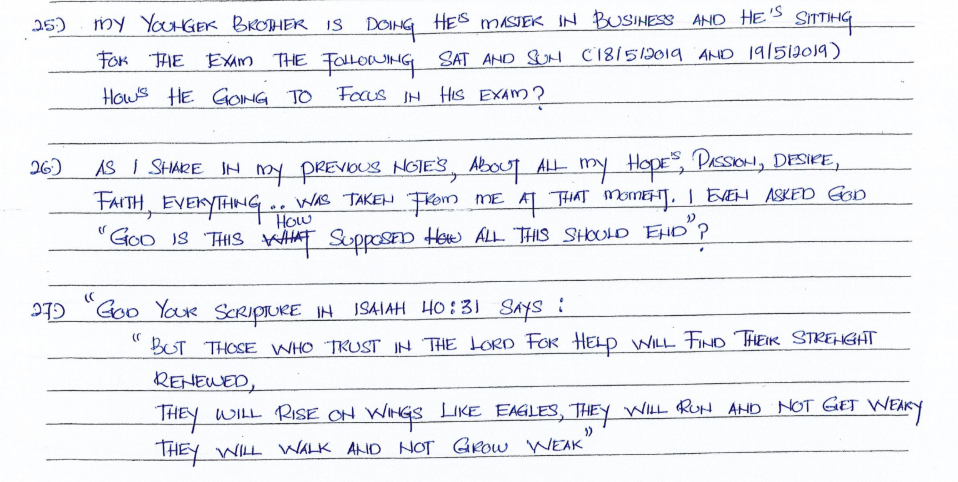 25.) MY YOUNGER BROTHER IS DOING HE'S MASTER IN BUSINESS AND HE'S SITTING
FOR THE EXAM THE FOLLOWING SAT AND SUN (18/5/2019 AND 19/5/2019)
HOW'S HE GOING TO FOCUS IN HIS EXAM?
26.) AS I SHARE IN MY PREVIOUS NOTE'S, ABOUT ALL MY HOPE'S, PASSION, DESIRE,
FAITH, EVERYTHING .. WAS TAKEN FROM ME AT THAT MOMENT. I EVEN ASKED GOD
"GOD IS THIS WHAT HOW SUPPOSED HOW ALL THIS SHOULD END"?
27.) "GOD YOUR SCRIPTURE IN ISAIAH 40:31 SAYS :
"BUT THOSE WHO TRUST IN THE LORD FOR HELP WILL FIND THEIR STRENGHT
RENEWED,
THEY WILL RISE ON WINGS LIKE EAGLES, THEY WILL RUN AND NOT GET WEAKY
THEY WILL WALK AND NOT GROW WEAK"